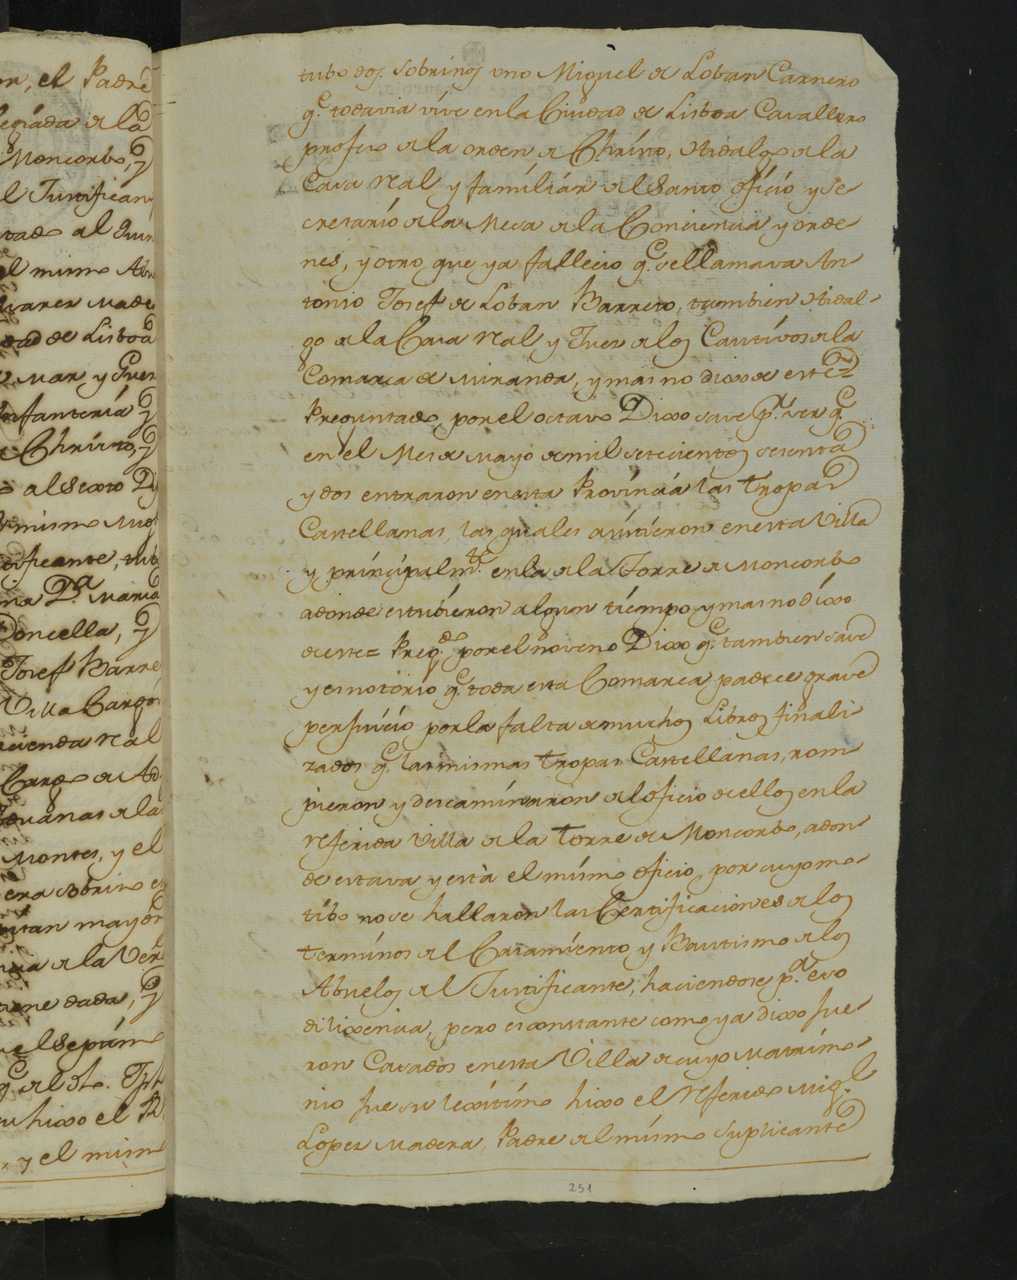 tubo dos sobrinos uno Miguel de Loban Carnero
q.e todavia víve en la Ciudad de Lisboa Cavallero
profeso de la orden de Chrísto, Hidalgo de la
Casa Real y famíliár del Santo ofício y Se
cretarío de la Mesa de la Conciencia y orde
nes, y otro que ya fallecio q.e se llamava An
tonio Josef de Loban Barreto, tambien Hidal-
go de la Casa Real y Juez de los Cautívos de la
Comarca de Miranda, y mas no dixo de este=
Preguntado por el octavo Dixo save p.r ver q.e
en el Mes de Mayo de mil setecientos sesenta
y dos entraron en esta Províncía las Tropas
Castellanas, las quales asistíeron en esta Villa
y príncípalm.te en la de la Torre de Moncorbo
adonde estubíeron algun tíempo y mas no díxo
de este= Preg.do por el noveno Dixo q.e tambien save
y es notorio q.e toda esta Comarca padece grave
perjuício por la falta de muchos Libros finali
zados q.e las mismas Tropas Castellanas, rom
pieron y descamínaron del oficio de ellos en la
referida Villa de la Torre de Moncorbo, adon
de estava y està el mísmo oficio, por cuyo mo-
tíbo no se hallaron las Certificacíones de los
termínos del Casamíento y Bautismo de los
Abuelos del Justificante, haciendose p.a eso
diligencia, pero es constante como ya dixo fue
ron Casados en esta Villa de cuyo Matrimo-
nio fue su lexítimo hixo el referido Mig.l
Lopez Madera, Padre del mísmo Suplicante
251
n, el Padre
de la
Moncorbo, y
l Justifican
al Quin
el mismo Abu
Made
dad de Lisboa
Mar, y Guer
Infanteria y
Chrísto, y
al Sexto Di
mismo
ificante, tubo
na D.a Maria
Doncella, y
Josef Barre
Villa
cienda Real
Cargo de Ad
duanas de la
Montes, y el
era sobrino
pitan mayor
de la Ver
tiene dada, y
el Septím
q.e
hixo el
y el mism